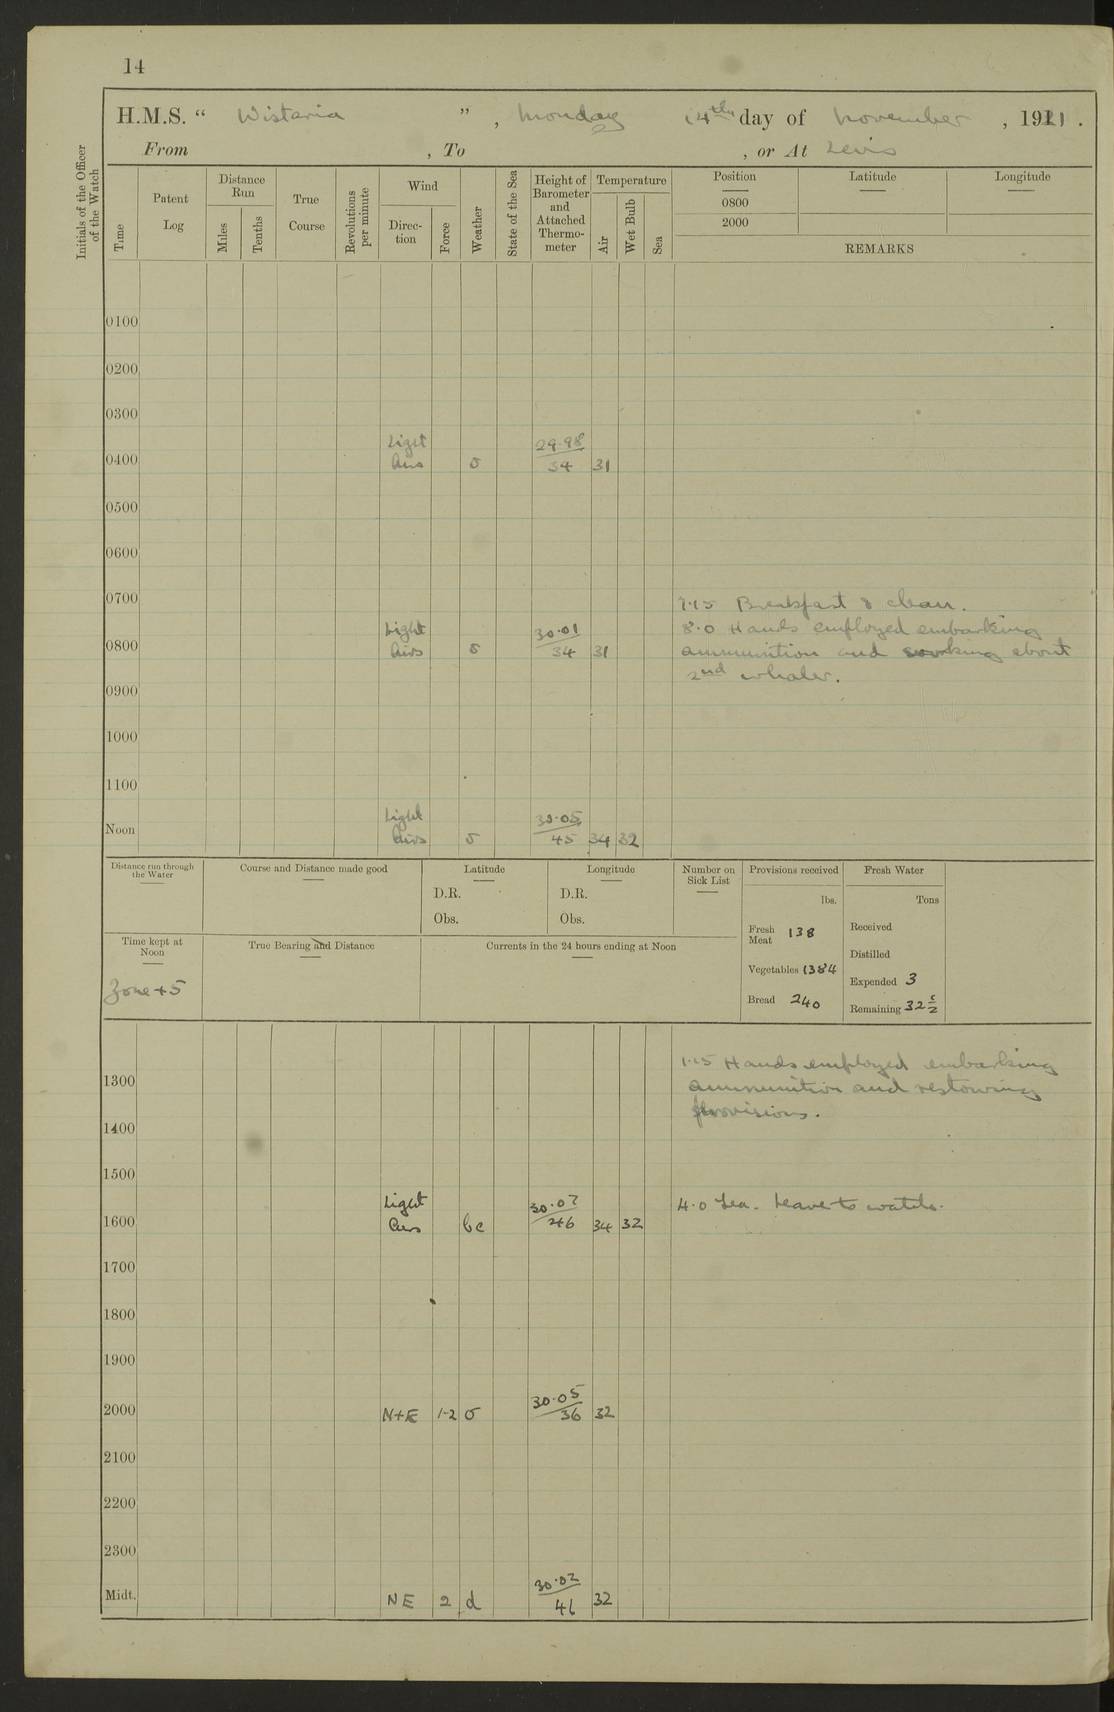 14
H.M.S. “ Wistaria ” , Monday 14th day of November , 1921 .
From , To , or At Levis
Initials of the Officer of the Watch
Time
Patent Log
Distance Run
Miles
Tenths
True Course
Revolutions per minute
Wind
Direc-tion
Force
Weather
State of the Sea
Height of Barometer and Attached Thermo-meter
Temperature
Air
Wet Bulb
Sea
Position Latitude Longitude
0800
2000
REMARKS
0100
0200
0300
Light 29.98
0400 Airs o 34 31
0500
0600
0700 7.15 Breakfast & clean.
Light 30.01 8.0 Hands employed embarking
0800 Airs o 34 31 ammunition and working about
2nd whaler.
0900
1000
1100
Light 30.05
Noon Airs o 45 34 32
Distance run through the Water
Course and Distance made good
Latitude
D.R.
Obs.
Longitude
D.R.
Obs.
Number on Sick List
Provisions received
lbs.
Fresh Meat 138
Vegetables 1384
Bread 240
Fresh Water
Tons
Received
Distilled
Expended 3
Remaining 32
Time kept at Noon
Zone +5
True Bearing and Distance
Currents in the 24 hours ending at Noon
1.15 Hands employed embarking
1300 ammunition and restowing
provisions.
1400
1500
Light 30.07 4.0 Tea. Leave to watch.
1600 Airs bc 46 34 32
1700
1800
1900
30.05
2000 N+E 1-2 o 36 32
2100
2200
2300
30.02
Midt. NE 2 d 46 32